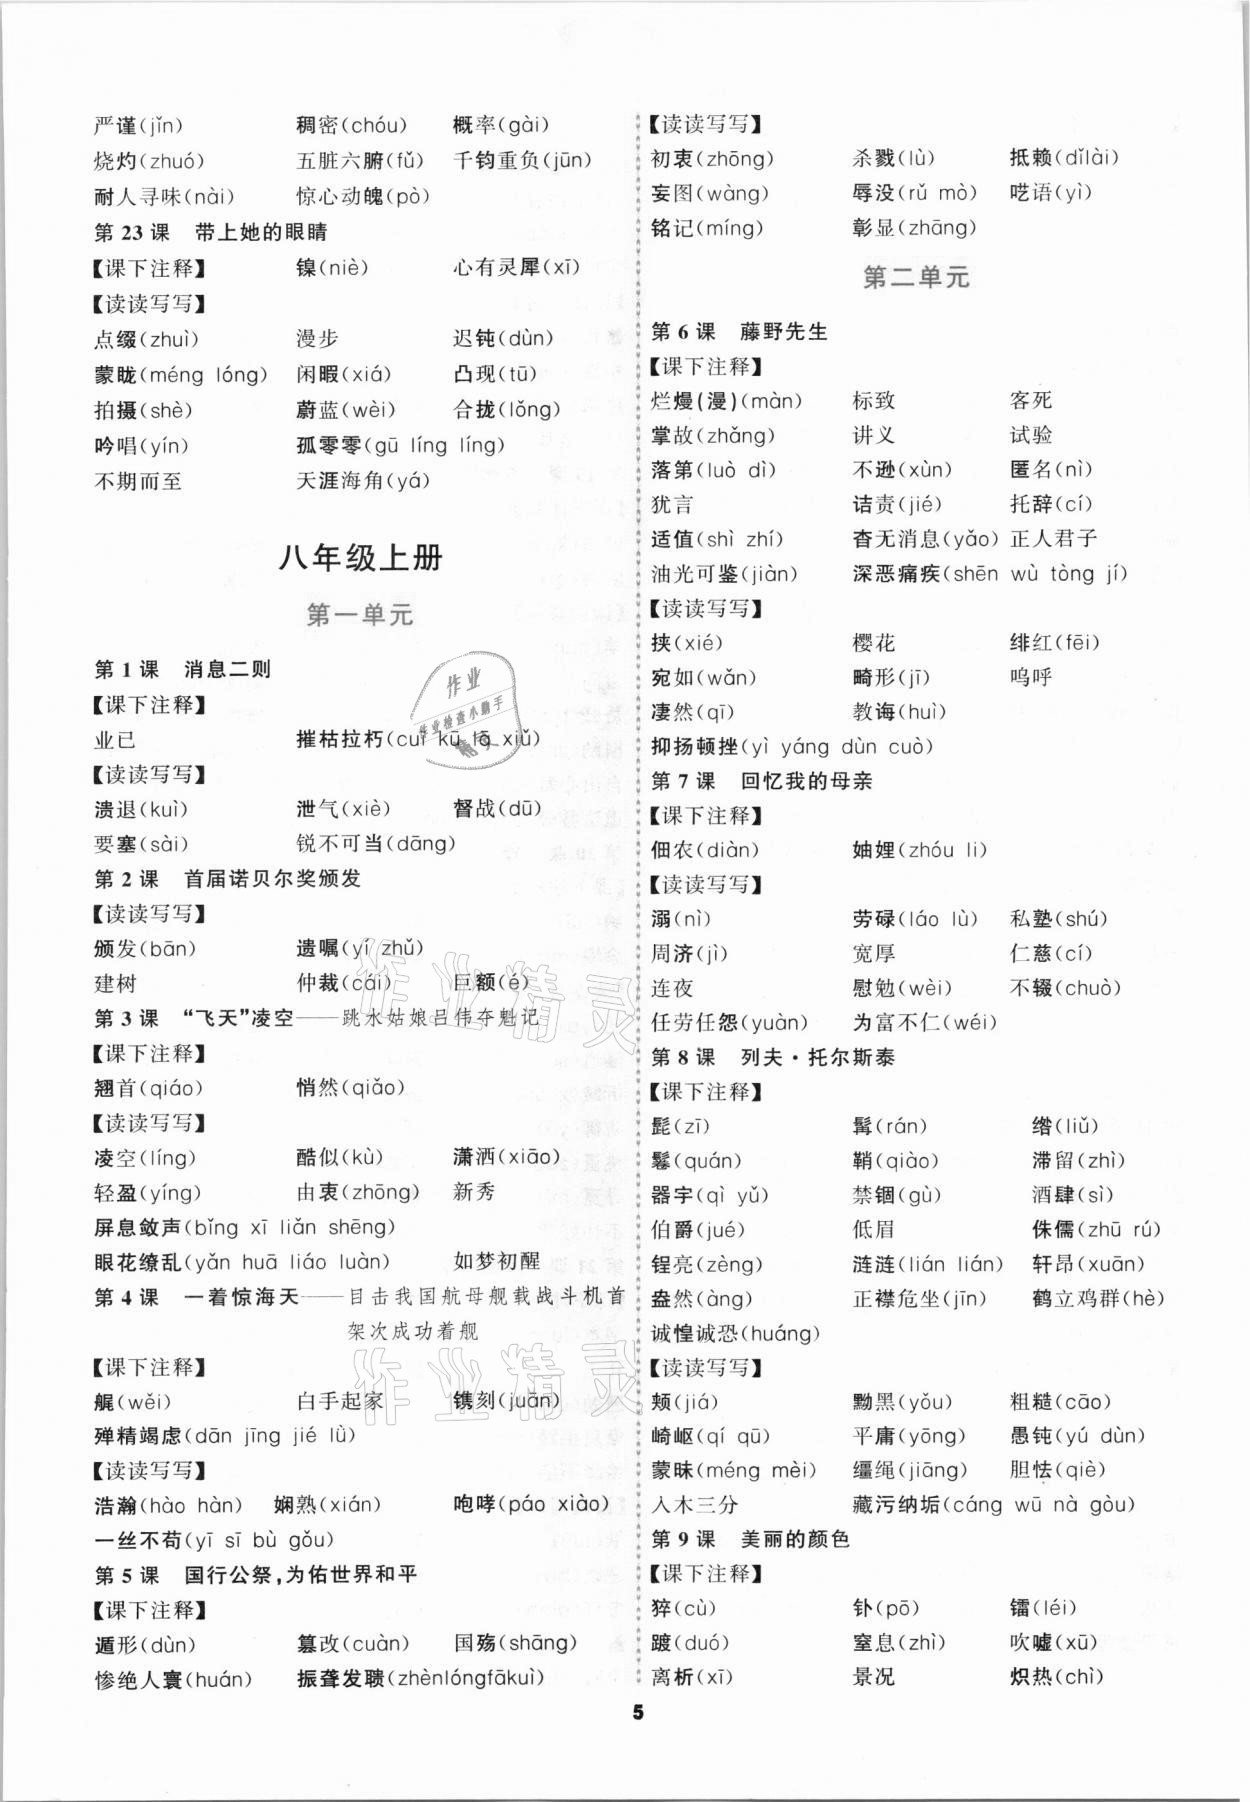 严谨(jǐn) 稠密(chóu) 概率(gài)
烧灼(zhuó) 五脏六腑(fǔ) 千钧重负(jūn)
耐人寻味(nài) 惊心动魄(pò)
第 23 课 带上她的眼睛
【课下注释】 镍(niè) 心有灵犀(xī)
【读读写写】
点缀(zhuì) 漫步 迟钝(dùn)
蒙眬(méng lóng) 闲暇(xiá) 凸现(tū)
拍摄(shè) 蔚蓝(wèi) 合拢(lǒng)
吟唱(yín) 孤零零(gū líng líng)
不期而至 天涯海角(yá)
八年级上册
第一单元
第 1 课 消息二则
【课下注释】
业已 摧枯拉朽(cuī kū lā xiǔ)
【读读写写】
溃退(kuì) 泄气(xiè) 督战(dū)
要塞(sài) 锐不可当(dāng)
第 2 课 首届诺贝尔奖颁发
【读读写写】
颁发(bān) 遗嘱(yí zhǔ)
建树 仲裁(cái) 巨额(é)
第 3 课 “飞天”凌空——跳水姑娘吕伟夺魁记
【课下注释】
翘首(qiáo) 悄然(qiǎo)
【读读写写】
凌空(líng) 酷似(kù) 潇洒(xiāo)
轻盈(yíng) 由衷(zhōng) 新秀
屏息敛声(bǐng xī liǎn shēng)
眼花缭乱(yǎn huā liáo luàn) 如梦初醒
第 4 课 一着惊海天——目击我国航母舰载战斗机首
架次成功着舰
【课下注释】
艉(wěi) 白手起家 镌刻(juān)
殚精竭虑(dān jīng jié lǜ)
【读读写写】
浩瀚(hào hàn) 娴熟(xián) 咆哮(páo xiào)
一丝不苟(yī sī bù gǒu)
第 5 课 国行公祭,为佑世界和平
【课下注释】
遁形(dùn) 篡改(cuàn) 国殇(shāng)
惨绝人寰(huán) 振聋发聩(zhènlóngfākuì)
【读读写写】
初衷(zhōng) 杀戮(lù) 抵赖(dǐlài)
妄图(wàng) 辱没(rǔ mò) 呓语(yì)
铭记(míng) 彰显(zhāng)
第二单元
第 6 课 藤野先生
【课下注释】
烂熳(漫)(màn) 标致 客死
掌故(zhǎng) 讲义 试验
落第(luò dì) 不逊(xùn) 匿名(nì)
犹言 诘责(jié) 托辞(cí)
适值(shì zhí) 杳无消息(yǎo) 正人君子
油光可鉴(jiàn) 深恶痛疾(shēn wù tòng jí)
【读读写写】
挟(xié) 樱花 绯红(fēi)
宛如(wǎn) 畸形(jī) 呜呼
凄然(qī) 教诲(huì)
抑扬顿挫(yì yáng dùn cuò)
第 7 课 回忆我的母亲
【课下注释】
佃农(diàn) 妯娌(zhóu li)
【读读写写】
溺(nì) 劳碌(láo lù) 私塾(shú)
周济(jì) 宽厚 仁慈(cí)
连夜 慰勉(wèi) 不辍(chuò)
任劳任怨(yuàn) 为富不仁(wéi)
第 8 课 列夫·托尔斯泰
【课下注释】
髭(zī) 髯(rán) 绺(liǔ)
鬈(quán) 鞘(qiào) 滞留(zhì)
器宇(qì yǔ) 禁锢(gù) 酒肆(sì)
伯爵(jué) 低眉 侏儒(zhū rú)
锃亮(zèng) 涟涟(lián lián) 轩昂(xuān)
盎然(àng) 正襟危坐(jīn) 鹤立鸡群(hè)
诚惶诚恐(huáng)
【读读写写】
颊(jiá) 黝黑(yǒu) 粗糙(cāo)
崎岖(qí qū) 平庸(yōng) 愚钝(yú dùn)
蒙昧(méng mèi) 缰绳(jiāng) 胆怯(qiè)
入木三分 藏污纳垢(cáng wū nà gòu)
第 9 课 美丽的颜色
【课下注释】
猝(cù) 钋(pō) 镭(léi)
踱(duó) 窒息(zhì) 吹嘘(xū)
离析(xī) 景况 炽热(chì)
5
作业
作业检查小助手
作业精灵
作业精灵